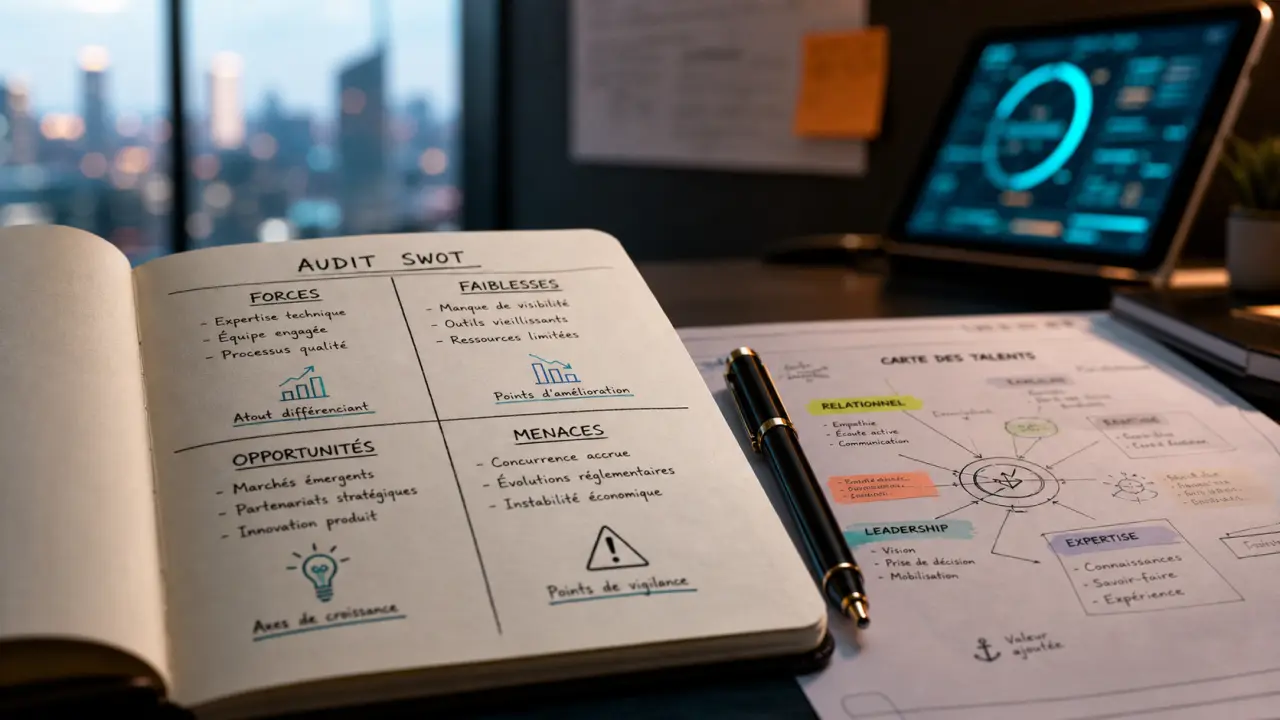 AUDIT SWOT
FORCES
- Expertise technique
- Équipe engagée
- Processus qualité
Atout différenciant
FAIBLESSES
- Manque de visibilité
- Outils vieillissants
- Ressources limitées
Points d'amélioration
OPPORTUNITÉS
- Marchés émergents
- Partenariats stratégiques
- Innovation produit
Axes de croissance
MENACES
- Concurrence accrue
- Évolutions réglementaires
- Instabilité économique
Points de vigilance
CARTE DES TALENTS
RELATIONNEL
- Empathie
- Écoute active
- Communication
LEADERSHIP
- Vision
- Prise de décision
- Mobilisation
EXPERTISE
- Connaissances
- Savoir-faire
- Expérience
Valeur
ajoutée